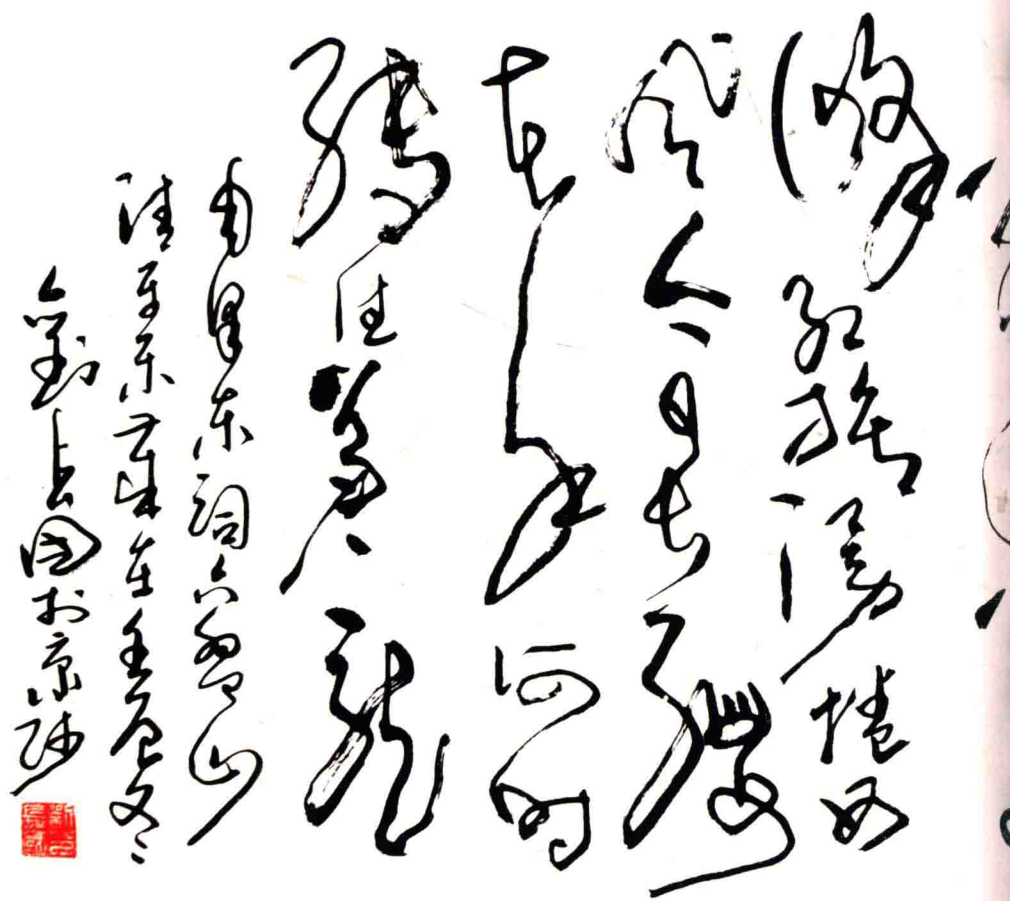 峰红旗漫捲西
风今日长缨
在手何时
缚住苍龙
泽东词六盘山
清平乐岁在壬辰冬
国於京师